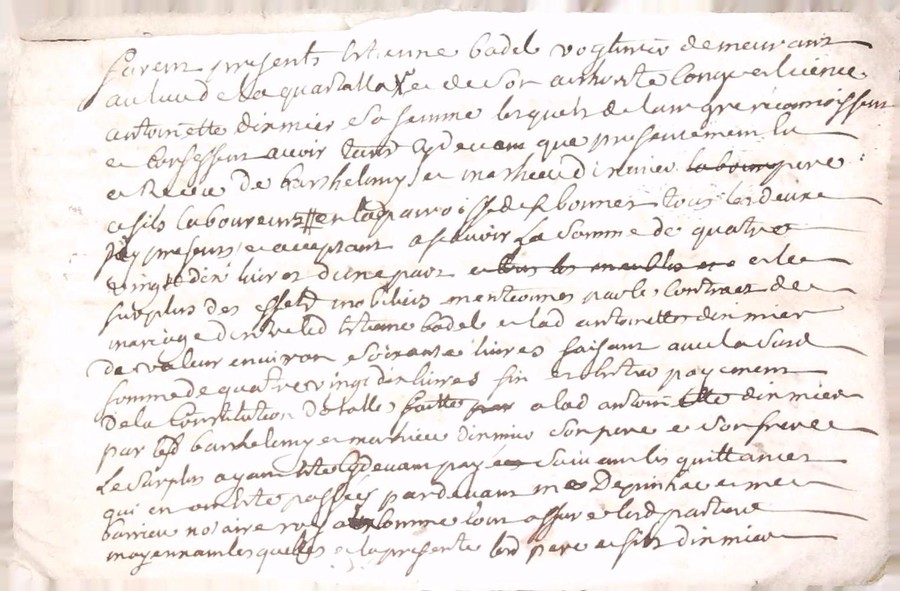 furent presents Estienne badel vogtinier demeurant
au lieu de la quartalla X et de son authorite Conge et licence
antoinette dinmier sa femme lesquels de leur gre reconnoissent
et Confessent avoir tant cydevant que presentement Eu
et Reçeu de barthelemy et mathieu dinmier pere
et fils laboureurs # en lad parroisse de bonnet tous les deux
icy presents et acceptant a scavoir La Somme de quatre
vingt dix livres dune part et le
surplus des effets mobiliers mentionnes par le Contract de
mariage dentre led Estienne badel et lad antoinette dinmier
de valeur environ soixante livres faisant avec la susd
somme de quatre vingt dix livres fin et entier payement
De la Constitution Dotalle faitte a lad antoinette dinmier
par led barthelemy et mathieu dinmier Son pere et Son frere
Le Surplus ayant este Cydevant payé Suivant les quittances
qui en ont este passées pardevant mes Depinhac et me
barrieu notaire royaux Comme lont assure lesd parties
moyennant lesquelles et la presente led pere et fils dinmier